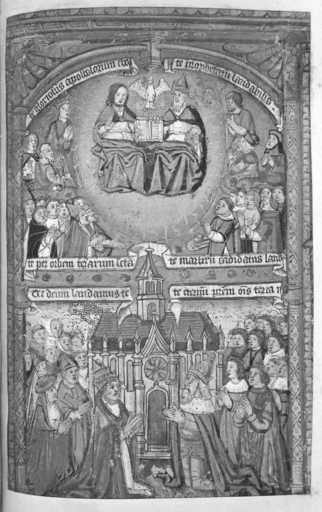 te gloriosus apostolorum cho
te prophetarum laudabilis
te per orbem terrarum scta
te martirū cādidatus laud
Te deum laudamus te
te eternū prēm ōis terra